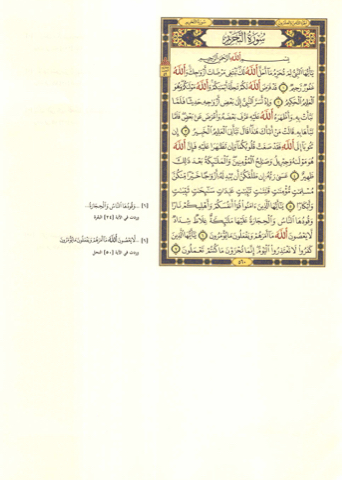 سُورَةُ التَّحْرِيمِ
بِسْمِ اللَّهِ الرَّحْمَٰنِ الرَّحِيمِ
يَا أَيُّهَا النَّبِيُّ لِمَ تُحَرِّمُ مَا أَحَلَّ اللَّهُ لَكَ تَبْتَغِي مَرْضَاتَ أَزْوَاجِكَ وَاللَّهُ
غَفُورٌ رَّحِيمٌ ١ قَدْ فَرَضَ اللَّهُ لَكُمْ تَحِلَّةَ أَيْمَانِكُمْ وَاللَّهُ مَوْلَاكُمْ وَهُوَ
الْعَلِيمُ الْحَكِيمُ ٢ وَإِذْ أَسَرَّ النَّبِيُّ إِلَىٰ بَعْضِ أَزْوَاجِهِ حَدِيثًا فَلَمَّا
نَبَّأَتْ بِهِ وَأَظْهَرَهُ اللَّهُ عَلَيْهِ عَرَّفَ بَعْضَهُ وَأَعْرَضَ عَن بَعْضٍ فَلَمَّا
نَبَّأَهَا بِهِ قَالَتْ مَنْ أَنبَأَكَ هَٰذَا قَالَ نَبَّأَنِيَ الْعَلِيمُ الْخَبِيرُ ٣ إِن
تَتُوبَا إِلَى اللَّهِ فَقَدْ صَغَتْ قُلُوبُكُمَا وَإِن تَظَاهَرَا عَلَيْهِ فَإِنَّ اللَّهَ
هُوَ مَوْلَاهُ وَجِبْرِيلُ وَصَالِحُ الْمُؤْمِنِينَ وَالْمَلَائِكَةُ بَعْدَ ذَٰلِكَ
ظَهِيرٌ ٤ عَسَىٰ رَبُّهُ إِن طَلَّقَكُنَّ أَن يُبْدِلَهُ أَزْوَاجًا خَيْرًا مِّنكُنَّ
مُسْلِمَاتٍ مُّؤْمِنَاتٍ قَانِتَاتٍ تَائِبَاتٍ عَابِدَاتٍ سَائِحَاتٍ ثَيِّبَاتٍ
وَأَبْكَارًا ٥ يَا أَيُّهَا الَّذِينَ آمَنُوا قُوا أَنفُسَكُمْ وَأَهْلِيكُمْ نَارًا
وَقُودُهَا النَّاسُ وَالْحِجَارَةُ عَلَيْهَا مَلَائِكَةٌ غِلَاظٌ شِدَادٌ
لَّا يَعْصُونَ اللَّهَ مَا أَمَرَهُمْ وَيَفْعَلُونَ مَا يُؤْمَرُونَ ٦ يَا أَيُّهَا الَّذِينَ
كَفَرُوا لَا تَعْتَذِرُوا الْيَوْمَ إِنَّمَا تُجْزَوْنَ مَا كُنتُمْ تَعْمَلُونَ ٧
٥٦٠
[٦] ...وَقُودُهَا النَّاسُ وَالْحِجَارَةُ...
وردت في الآية [٢٤] البقرة
[٦] ...لَا يَعْصُونَ اللَّهَ مَا أَمَرَهُمْ وَيَفْعَلُونَ مَا يُؤْمَرُونَ
وردت في الآية [٥٠] النحل